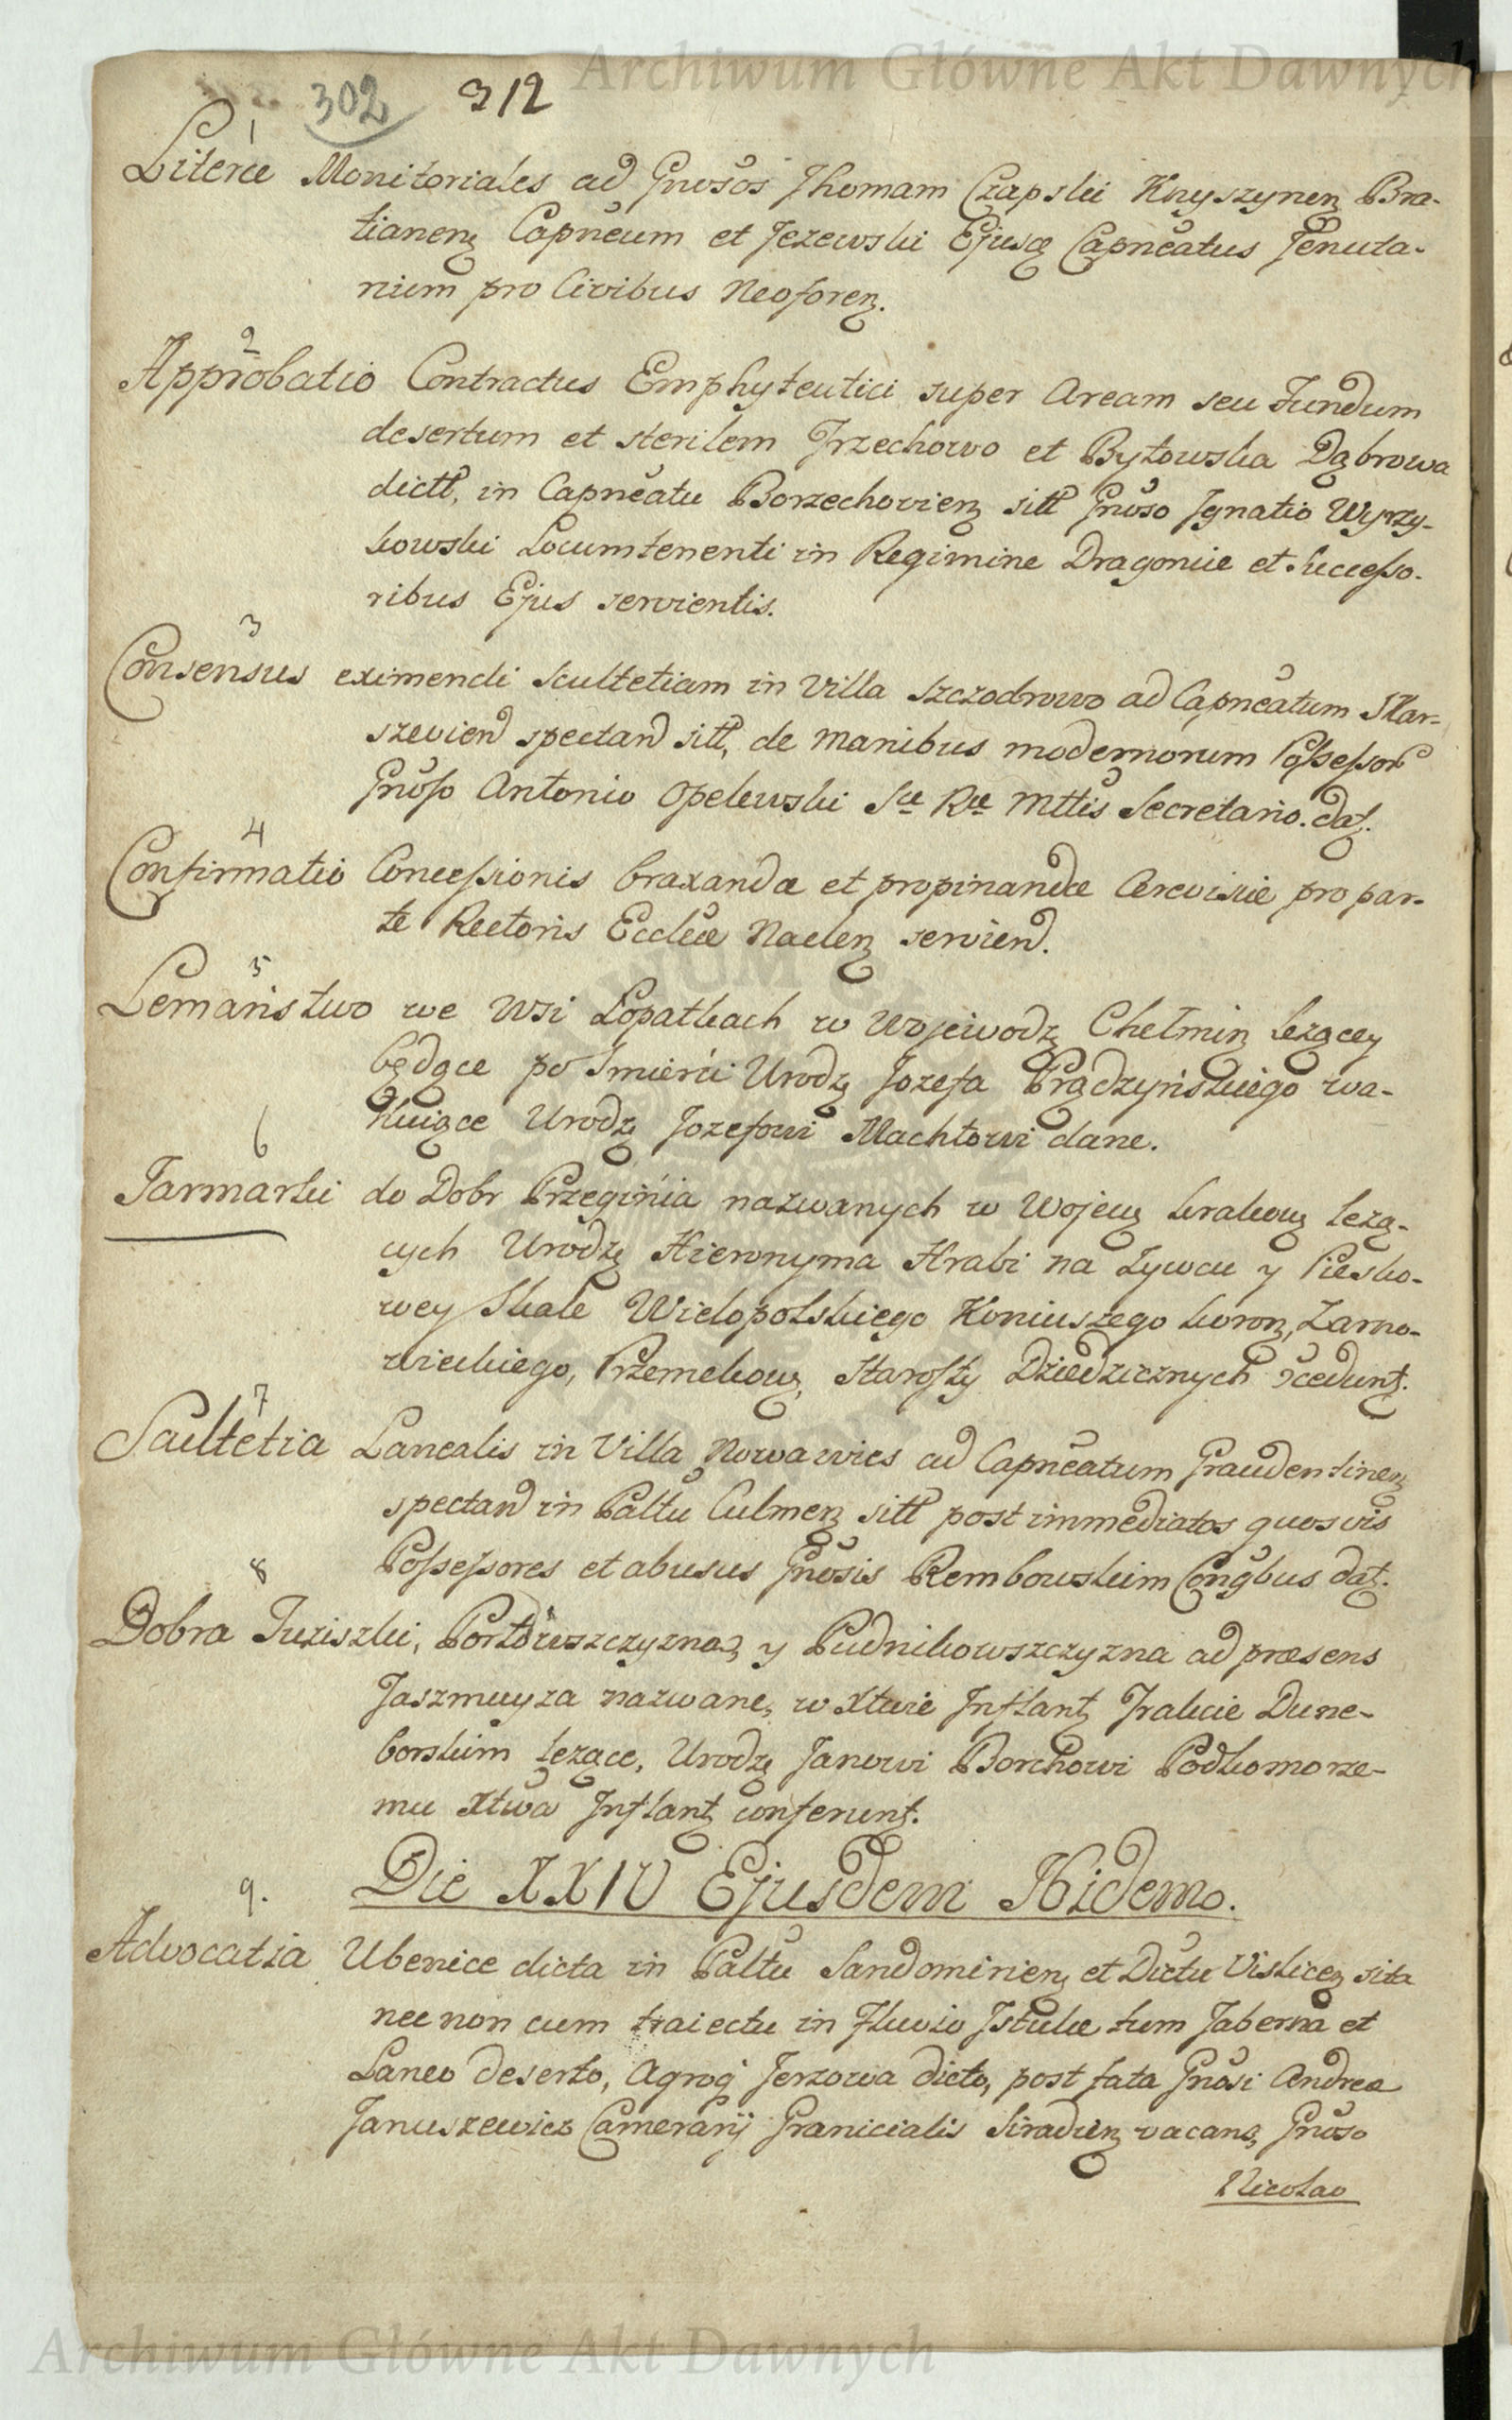 Archiwum Główne Akt Dawnych
302 312
1
Literæ Monitoriales ad Gnosos Thomam Czapski Knyszynen Bra-
tianen Capneum et Jezewski Ejusq Capneatus Tenuta-
rium pro Civibus Neoforen.
2
Approbatio Contractus Emphyteutici super Aream seu Fundum
desertum et sterilem Trzechowo et Bytowska Dąbrowa
dictt, in Capneatu Borzechovien sitt Gnoso Ignatio Wyrzy-
kowski Locumtenenti in Regimine Dragoniæ et Successo-
ribus Ejus servientis.
3
Consensus eximendi Scultetiam in Villa Szczodrowo ad Capneatum Skar-
szevien spectan sitt, de manibus modernorum Possessor
Gnoso Antonio Opelewski Sæ Ræ Mttis Secretario. dat.
4
Confirmatio Concessionis braxandæ et propinandæ Cerevisiæ pro par-
te Rectoris Eccliæ Naclen servien.
5
Lemaństwo we Wsi Łopatkach w Wojewodz Chełmin lezącey
będące po Smierci Urodz Jozefa Prądzyńskiego wa-
kuiące Urodz Jozefowi Machtowi dane.
6
Jarmarki do Dobr Przeginia nazwanych w Wojew krakow lezą-
cych Urodz Hieronyma Hrabi na Zywcu y Piesko-
wey Skale Wielopolskiego Koniuszego koron, Zarno-
wieckiego, Przemekow, Starosty Dziedzicznych cedunt.
7
Scultetia Lanealis in Villa Nowawies ad Capneatum Graudentinen
spectan in Paltu Culmen sitt post immediatos quosvis
Possessores et abusus Gnosis Rembowskim Congbus dat.
8
Dobra Juziszki, y Pudnikowszczyzna ad præsens
Jaszmuyza nazwane, w Xtwie Inflant Trakcie Dune-
borskim lezące, Urodz Janowi Borchowi Podkomorze-
mu Xtwa Inflant conferunt.
Die XXIV Ejusdem Ibidem.
9.
Advocatia Ubenice dicta in Paltu Sandomirien et Dictu Vislicen sita
nec non cum traiectu in Fluvio Istulæ tum Taberna et
Laneo deserto, Agroq Jerzowa dicto, post fata Gnosi Andreæ
Januszewicz Camerarij Granicialis Siradien vacans, Gnoso
Nicolao
Archiwum Główne Akt Dawnych